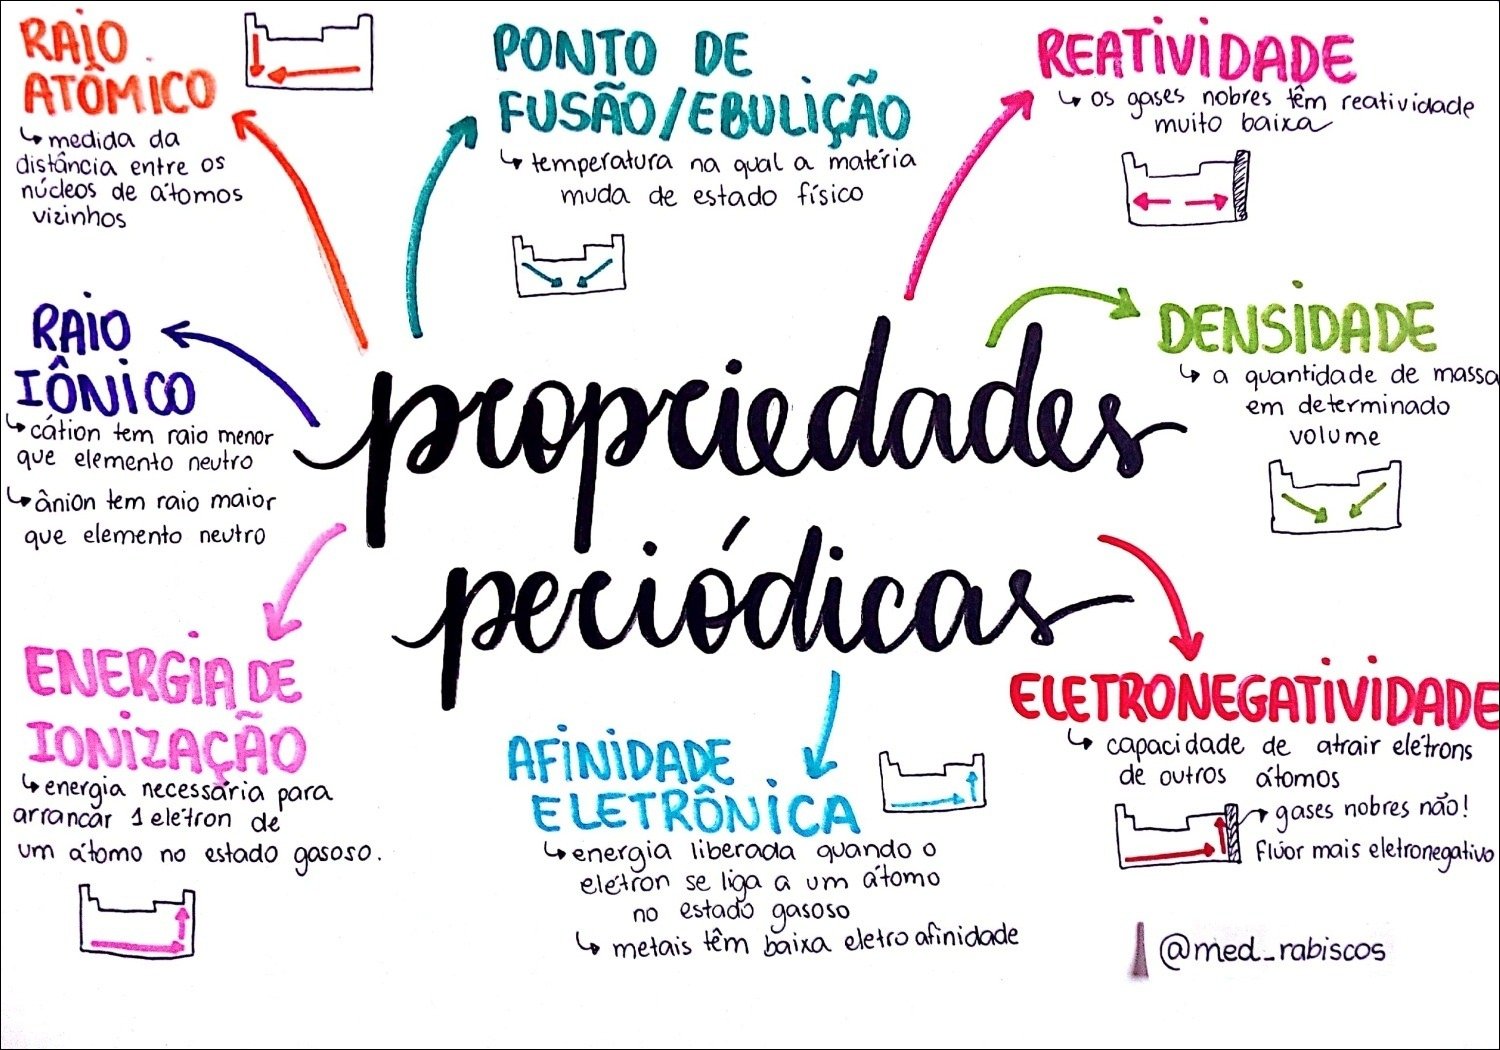 RAIO
ATÔMICO
↳ medida da
distância entre os
núcleos de átomos
vizinhos
PONTO DE
FUSÃO/EBULIÇÃO
↳ temperatura na qual a matéria
muda de estado físico
REATIVIDADE
↳ os gases nobres têm reatividade
muito baixa
RAIO
IÔNICO
↳ cátion tem raio menor
que elemento neutro
↳ ânion tem raio maior
que elemento neutro
DENSIDADE
↳ a quantidade de massa
em determinado
volume
propriedades
periódicas
ENERGIA DE
IONIZAÇÃO
↳ energia necessária para
arrancar 1 elétron de
um átomo no estado gasoso.
AFINIDADE
ELETRÔNICA
↳ energia liberada quando o
elétron se liga a um átomo
no estado gasoso
↳ metais têm baixa eletroafinidade
ELETRONEGATIVIDADE
↳ capacidade de atrair elétrons
de outros átomos
→ gases nobres não!
Flúor mais eletronegativo
@med_rabiscos